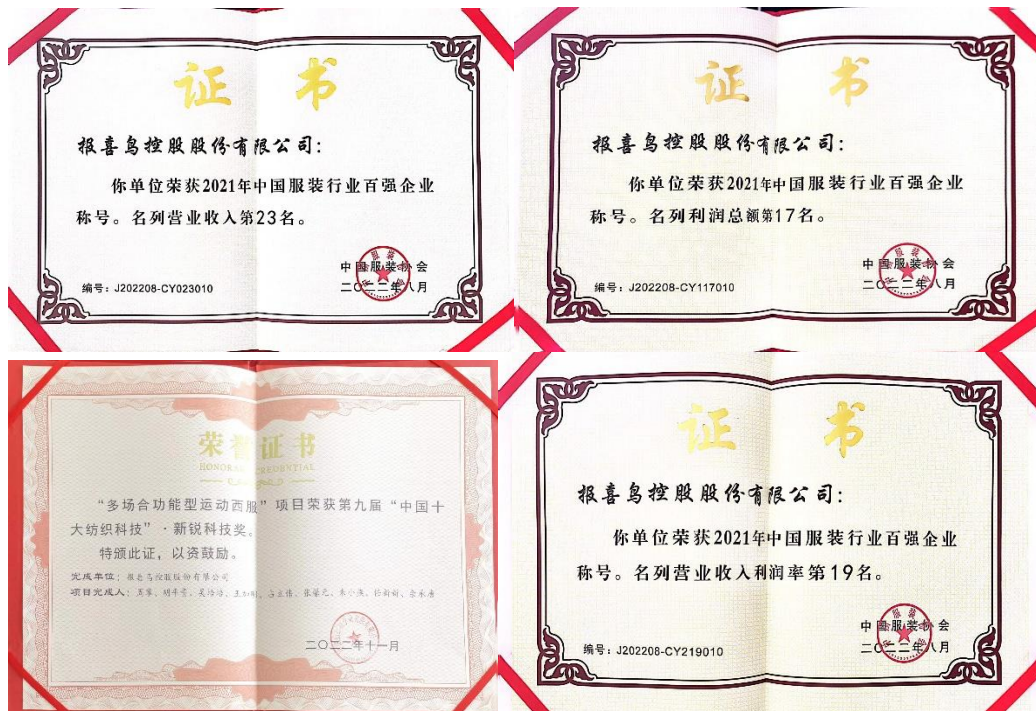 证 书
报喜鸟控股股份有限公司：
你单位荣获2021年中国服装行业百强企业
称号。名列营业收入第23名。
中国服装协会
编号：J202208-CY023010
二〇二二年八月
证 书
报喜鸟控股股份有限公司：
你单位荣获2021年中国服装行业百强企业
称号。名列利润总额第17名。
中国服装协会
编号：J202208-CY117010
二〇二二年八月
荣誉证书
HONORARY CREDENTIAL
“多场合功能型运动西服”项目荣获第九届“中国十
大纺织科技”·新锐科技奖。
特颁此证，以资鼓励。
完成单位：报喜鸟控股股份有限公司
项目完成人：
二〇二二年十一月
证 书
报喜鸟控股股份有限公司：
你单位荣获2021年中国服装行业百强企业
称号。名列营业收入利润率第19名。
中国服装协会
编号：J202208-CY219010
二〇二二年八月